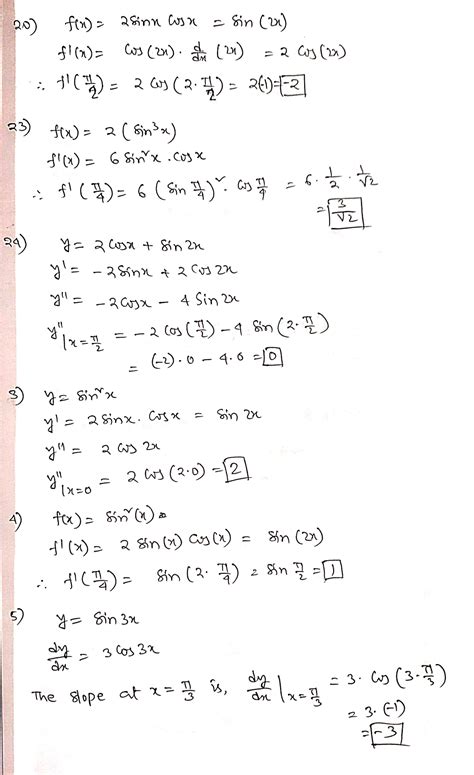 20) f(x) = 2 sinx cosx = sin (2x)
f'(x) = cos (2x) · d/dx (2x) = 2 cos (2x)
∴ f'(π/2) = 2 cos (2·π/2) = 2(-1) = -2
23) f(x) = 2 (sin³x)
f'(x) = 6 sin²x · cosx
∴ f'(π/4) = 6 (sin π/4)² · cos π/4 = 6 · 1/2 · 1/√2
= 3/√2
24) y = 2cosx + sin 2x
y' = -2sinx + 2 cos 2x
y'' = -2cosx - 4 sin 2x
y''|x=π/2 = -2 cos(π/2) - 4 sin(2·π/2)
= (-2)·0 - 4·0 = 0
3) y = sin²x
y' = 2 sinx · cosx = sin 2x
y'' = 2 cos 2x
y''|x=0 = 2 cos (2·0) = 2
4) f(x) = sin²(x)
f'(x) = 2 sin(x) cos(x) = sin (2x)
∴ f'(π/4) = sin (2·π/4) = sin π/2 = 1
5) y = sin 3x
dy/dx = 3 cos 3x
The slope at x = π/3 is, dy/dx|x=π/3 = 3· cos (3·π/3)
= 3·(-1)
= -3